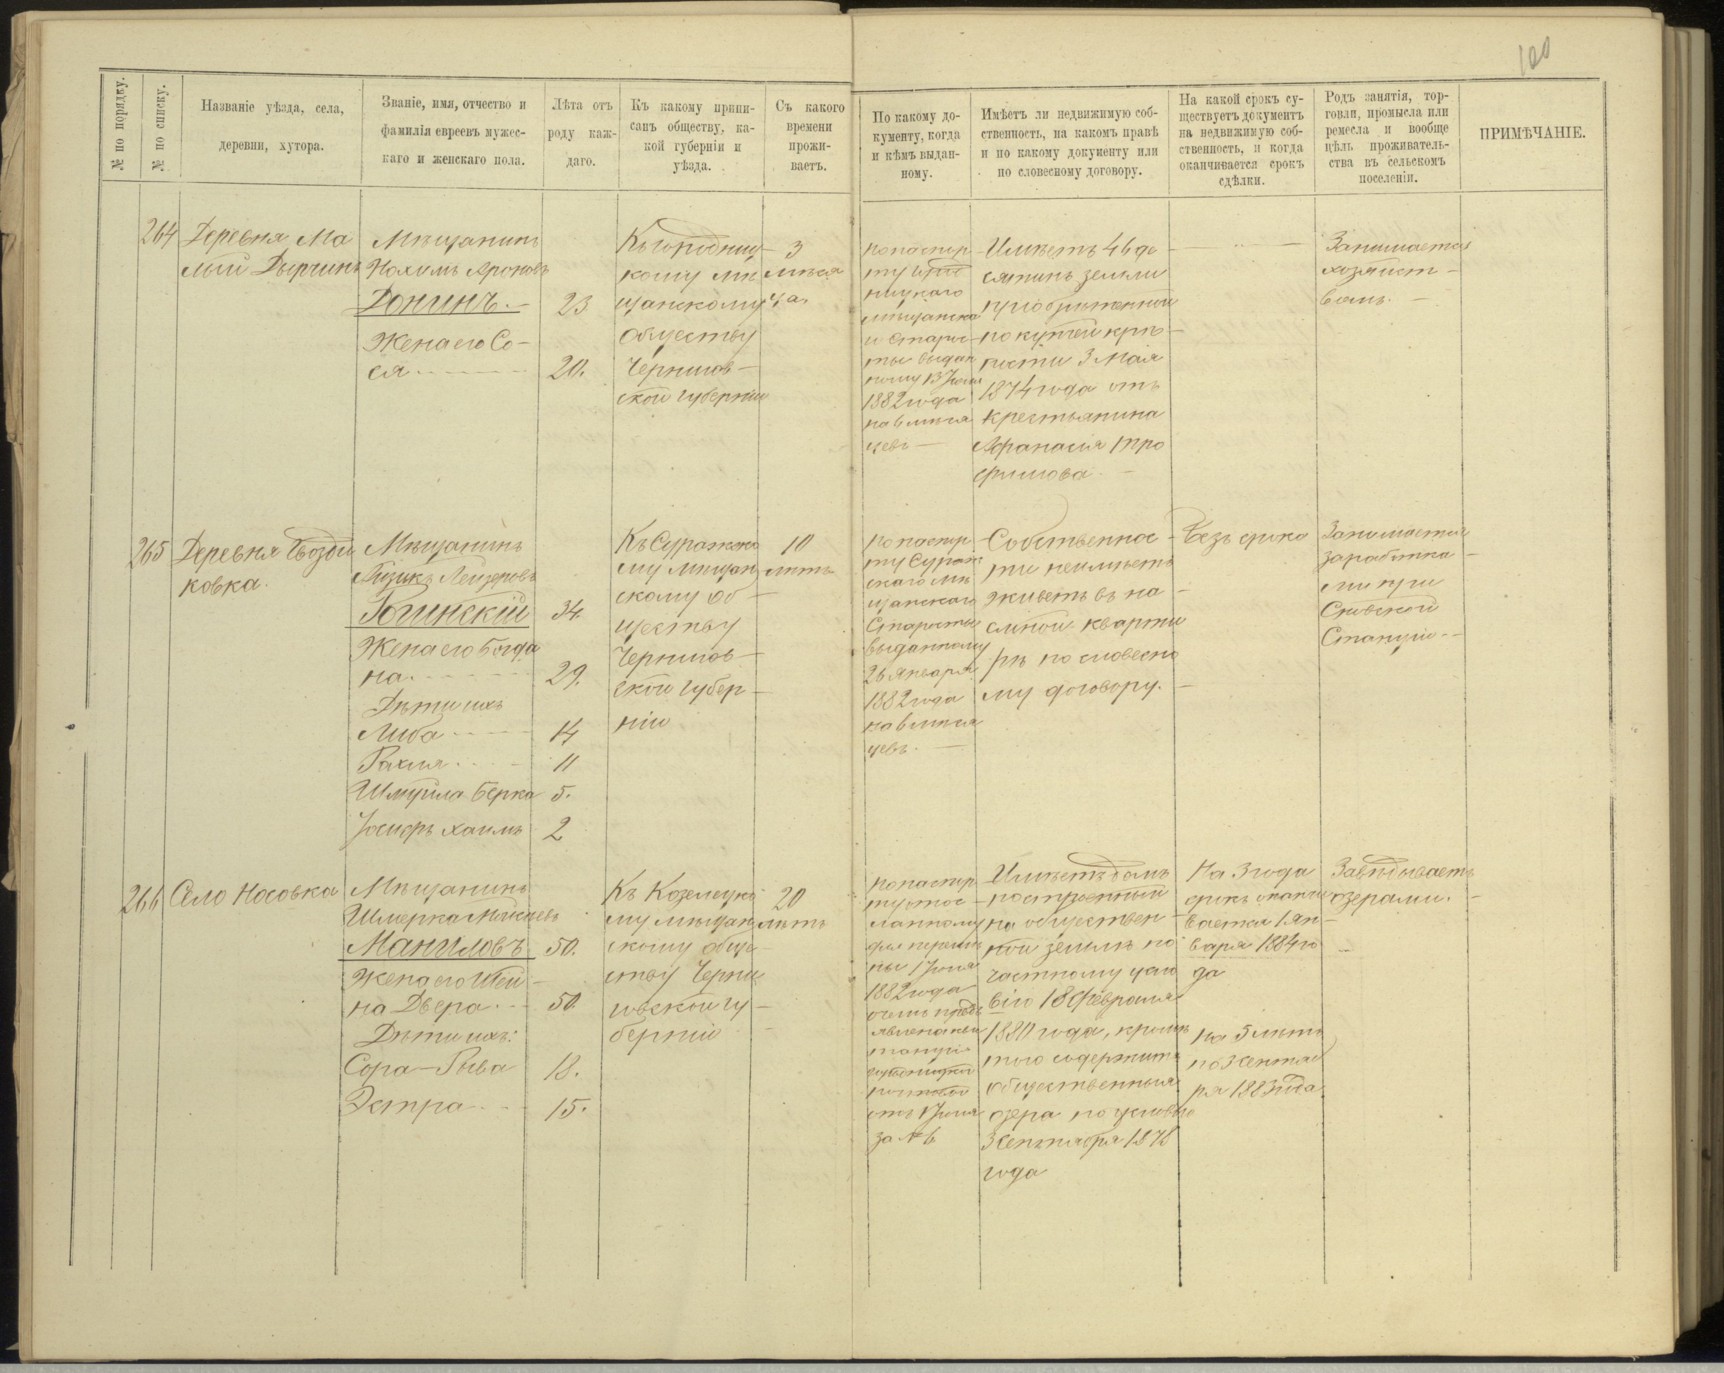 100
№ по порядку.
№ по списку.
Названіе уѣзда, села,
деревни, хутора.
Званіе, имя, отчество и
фамилія евреевъ мужес-
каго и женскаго пола.
Лѣта отъ
роду каж-
даго.
Къ какому припи-
санъ обществу, ка-
кой губерніи и
уѣзда.
Съ какого
времени
прожи-
ваетъ.
По какому до-
кументу, когда
и кѣмъ выдан-
ному.
Имѣетъ ли недвижимую соб-
ственность, на какомъ правѣ
и по какому документу или
по словесному договору.
На какой срокъ су-
ществуетъ документъ
на недвижимую соб-
ственность, и когда
оканчивается срокъ
сдѣлки.
Родъ занятія, тор-
говли, промысла или
ремесла и вообще
цѣль проживатель-
ства въ сельскомъ
поселеніи.
ПРИМѢЧАНІЕ.
264
Деревня Ма
лый Дырчинъ
Мѣщанинъ
Нохимъ Ароновъ
Донинъ.
23
Жена его Со-
ся
20.
Къ Городниц-
кому мѣ
щанскому
обществу
Чернигов-
ской губерніи
3
мѣся
ца.
по паспор
ту Город
ницкаго
мѣщанска
го старос-
ты выдан
ному 13 Іюня
1882 года
на 6 мѣся
цевъ
Имѣетъ 46 де
сятинъ земли
пріобрѣтенной
по купчей крѣ-
пости 3 Мая
1874 года отъ
крестьянина
Афанасія Тро
фимова.
Занимается
хозяйст-
вомъ.
265
Деревня Гвозди
ковка.
Мѣщанинъ
Айзикъ Лейзеровъ
Гогинскій
34.
Жена его Богда
на.
29.
Дѣти ихъ
Либа
14
Рахля
11
Шмуйла Берка
5.
Іосифъ Хаимъ
2
Къ Суражско
му мѣщан
скому об-
ществу
Чернигов-
ской губер-
ніи
10
лѣтъ
по паспор
ту Сураж
скаго мѣ
щанскаго
Старосты
выданному
26 Января
1882 года
на 6 мѣся
цевъ.
Собственнос-
ти не имѣетъ
живетъ въ на-
емной кварти
рѣ по словесно
му договору.
Безъ срока
Занимается
заработка-
ми при
Сновской
Станціи
266
Село Носовка
Мѣщанинъ
Маниловъ
50.
Жена его Шей-
на Двера.
50.
Дѣти ихъ:
Сора-Рыва
18.
Эстра.
15.
Къ Козелецко
му мѣщан
скому обще-
ству Черни
говской гу-
берніи
20
лѣтъ
по паспор
ту пос-
ланному
для перемѣ
ны 1 Іюня
1882 года
отъ 1 Іюня
за № 6
Имѣетъ домъ
построенный
на обществен-
ной землѣ по
частному усло
вію 18 Февраля
1880 года, кромѣ
того содержитъ
общественныя
озера по условію
3 Сентября 1878
года
На 3 года
срокъ оканчи
вается 1 Ян-
варя 1884 го
да
на 5 лѣтъ
по 3 Сентяб
ря 1883 года
Завѣдываетъ
озерами.